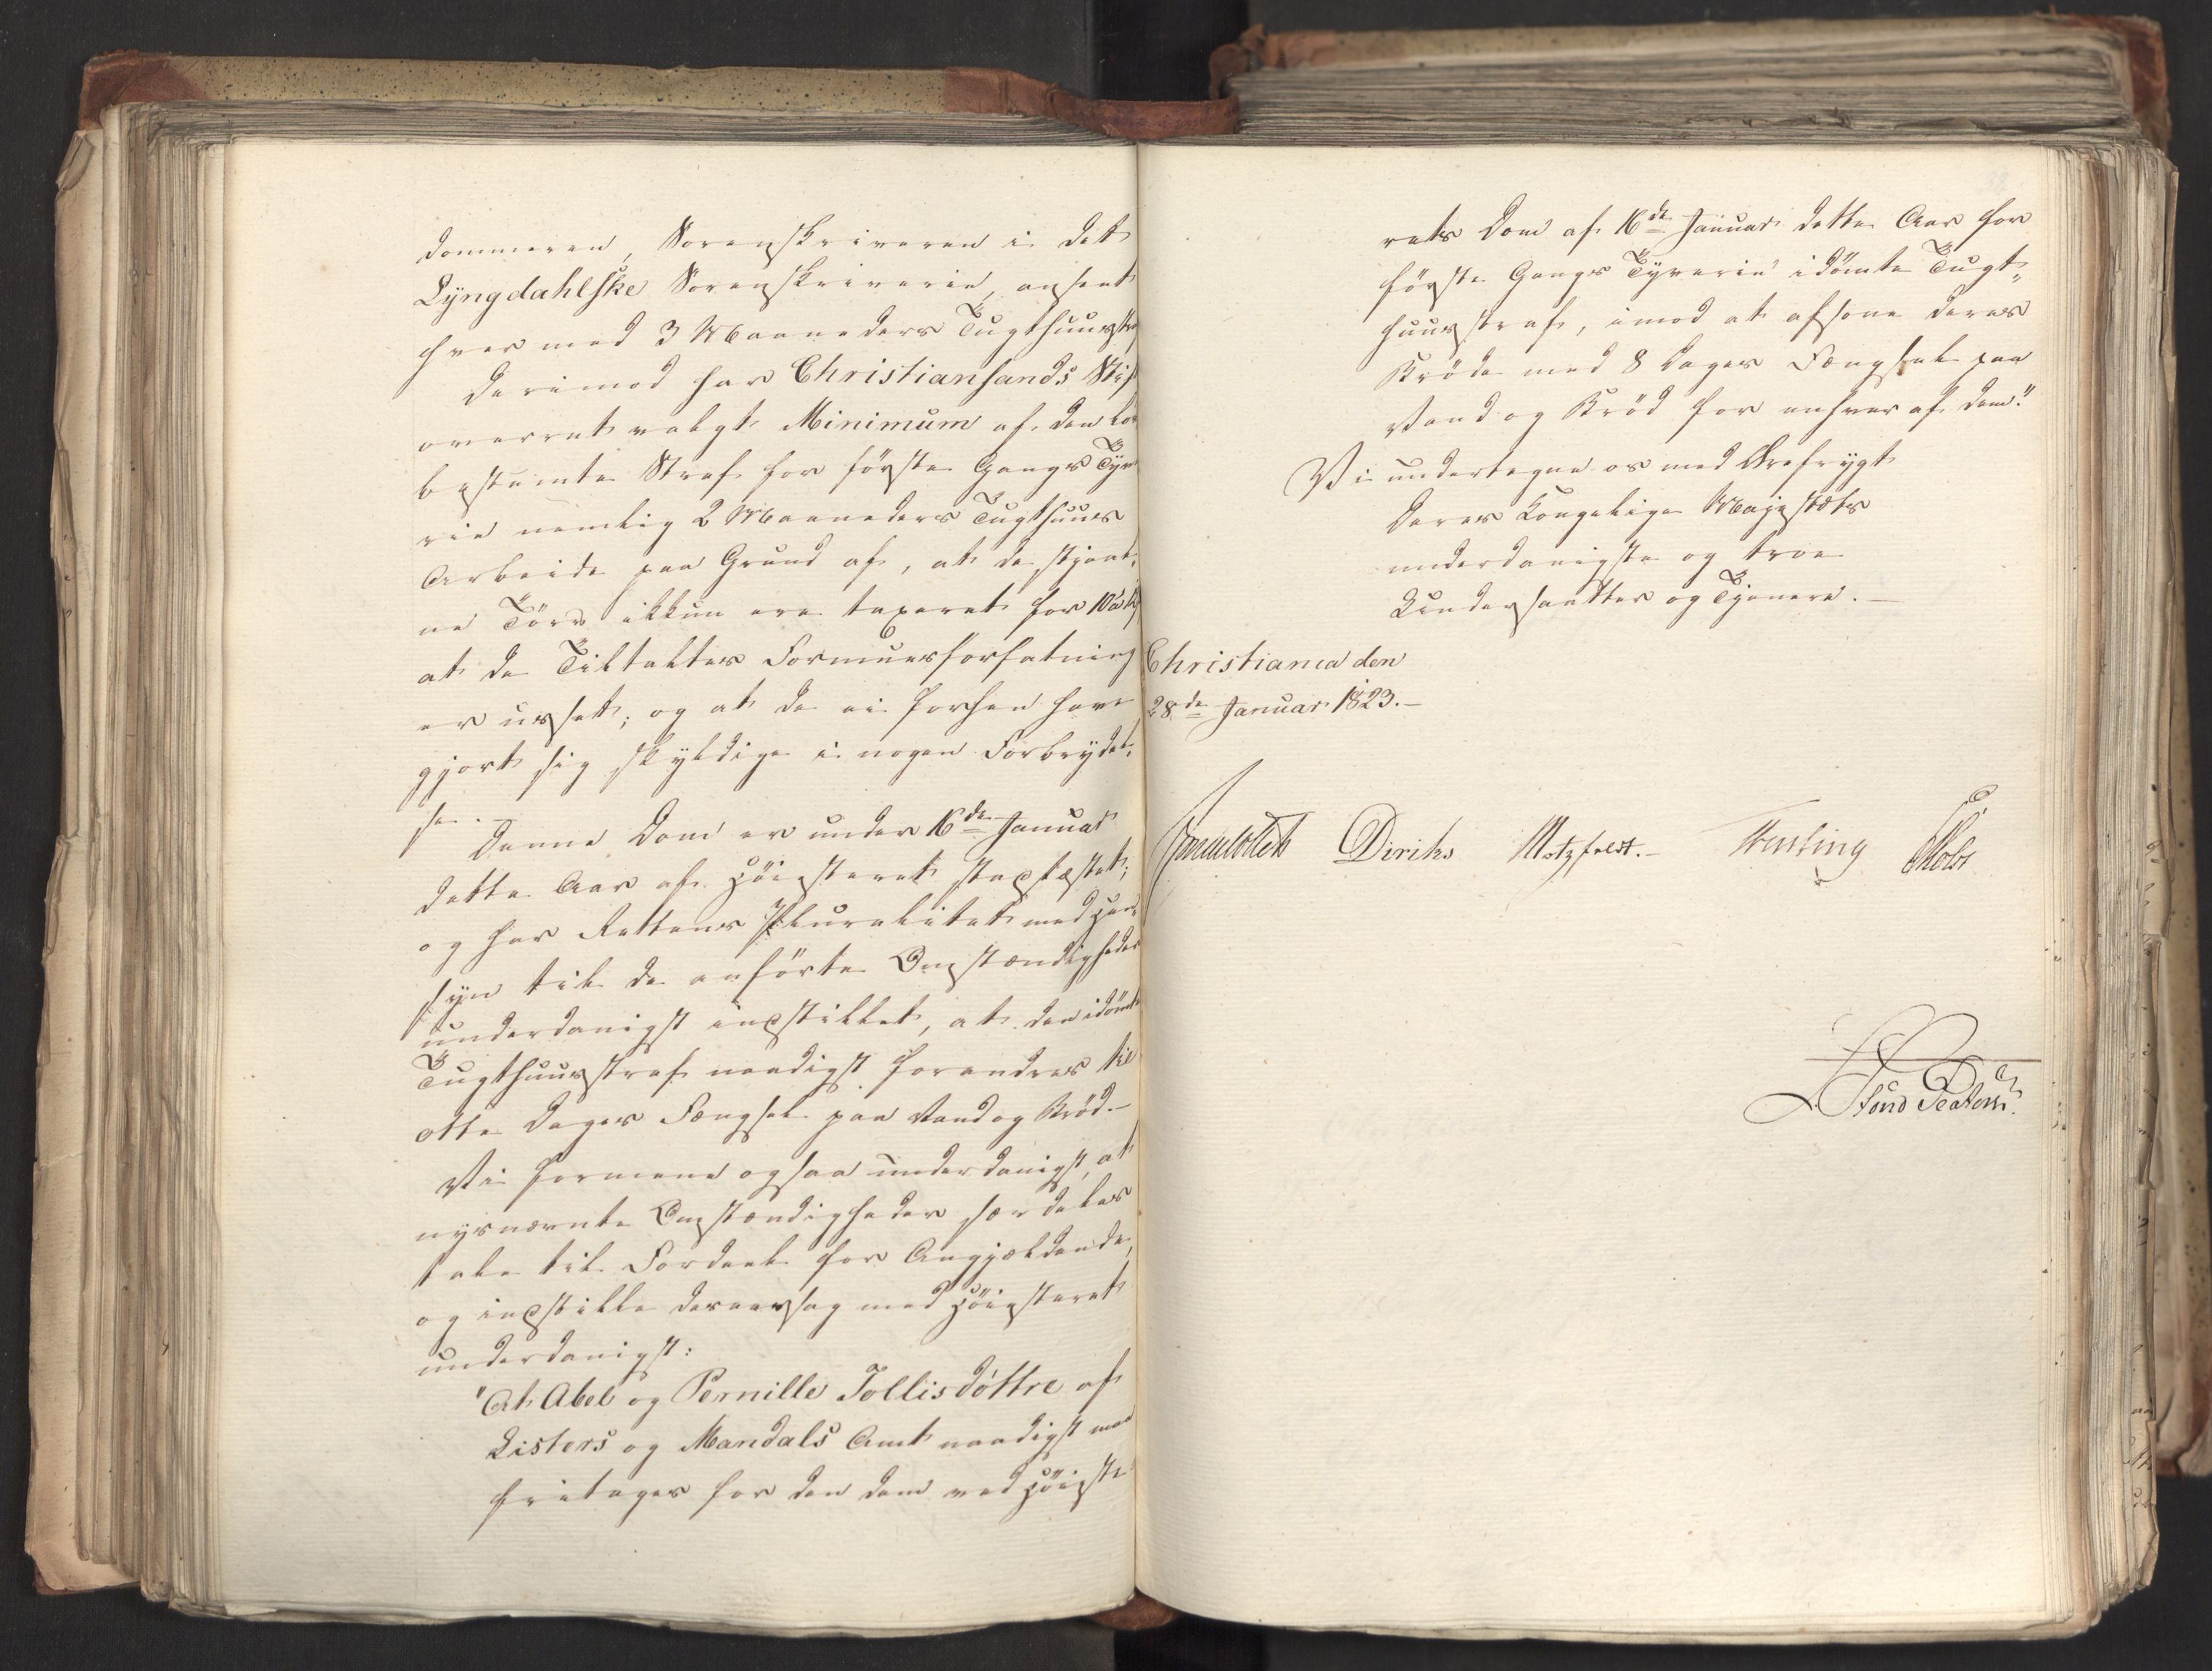 dommeren, Sorenskriveren i det
Lyngdahlske Sorenskriverie, anseet
hver med 3 Maaneders Tugthuusstraf
Derimod har Christiansands Stifts
overret valgt Minimum af den lov
bestemte Straf for første Gangs Tyve
rie nemlig 2 Maaneders Tugthuus
Arbeide paa Grund af, at de stjaal„
ne ikkun ere taxeret for 10
at de Tiltaltes Formuesforfatning
er ussel; og at de ei forhen have
gjort sig skyldige i nogen Forbrydel„
se. –
Denne Dom er under 16de Januar
dette Aar af Høiesteret stadfæstet;
og har Rettens Pluralitet med Hen
syn til de anførte Omstændigheder
underdanigst indstillet, at den idømte
Tugthuusstraf naadigst forandres til
otte Dages Fængsel paa Vand og Brød. –
Vi formene ogsaa underdanigst, at
nysnævnte Omstændigheder særdeles
tale til Fordeel for Angjældende,
og indstille desaarsag med Høiesteret
underdanigst:
"At Abel og Pernille Tollisdøttre af
Listers og Mandals Amt naadigst maa
fritages for den dem ved Høieste
rets Dom af 16de Januar dette Aar for
første Gangs Tyverie idømte Tugt„
huusstraf, imod at afsone deres
Brøde med 8 Dages Fængsel paa
Vand og Brød for enhver af dem."
Vi undertegne os med Ærefrygt
Deres Kongelige Majestæts
underdanigste og troe
Undersaatter og Tjenere. –
Christiania den
28de Januar 1823. –
Diriks Motzfeldt. – Treschow Holst